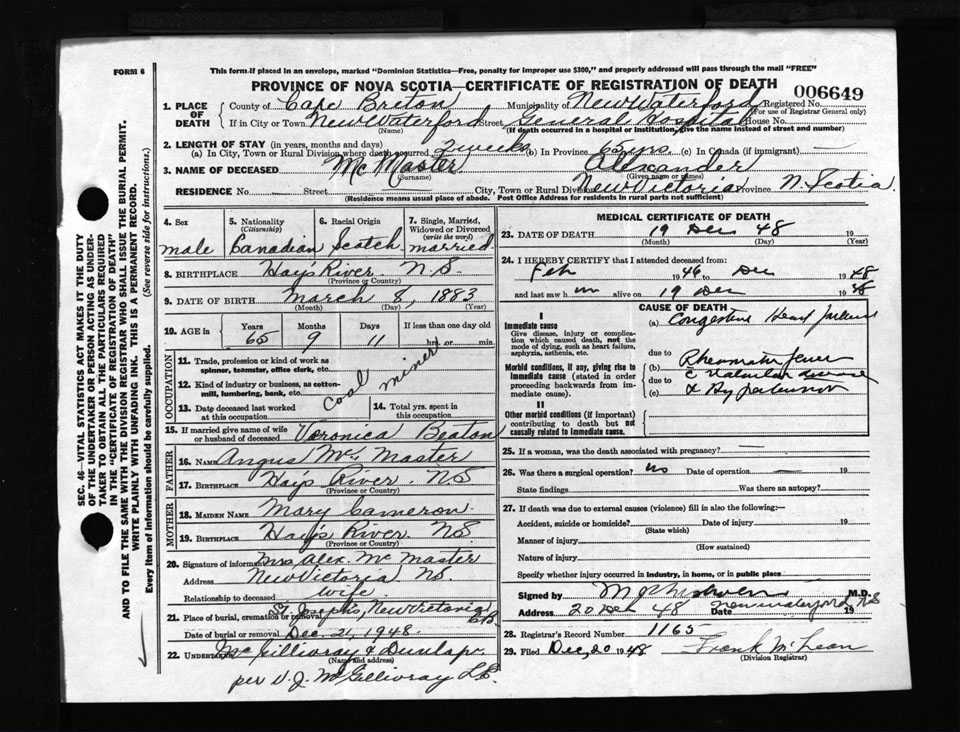 FORM 6
This form if placed in an envelope, marked "Dominion Statistics—Free, penalty for improper use $300," and properly addressed will pass through the mail "FREE"
PROVINCE OF NOVA SCOTIA—CERTIFICATE OF REGISTRATION OF DEATH
006649
1. PLACE OF DEATH
County of Cape Breton Municipality of New Waterford Registered No.
(For use of Registrar General only)
If in City or Town New Waterford Street General Hospital House No.
(Name) (If death occurred in a hospital or institution, give the name instead of street and number)
2. LENGTH OF STAY (in years, months and days)
(a) In City, Town or Rural Division where death occurred 2 weeks (b) In Province 65 yrs. (c) In Canada (if immigrant) —
3. NAME OF DECEASED Mc Master Alexander
(Surname) (Given name or names)
RESIDENCE No. Street City, Town or Rural Division New Victoria Province N. Scotia.
(Residence means usual place of abode. Post Office Address for residents in rural parts not sufficient)
4. Sex male
5. Nationality (Citizenship) Canadian
6. Racial Origin Scotch
7. Single, Married, Widowed or Divorced (write the word) married.
8. BIRTHPLACE Hay's River N.S.
(Province or Country)
9. DATE OF BIRTH March 8, 1883
(Month) (Day) (Year)
10. AGE in Years Months Days If less than one day old
65 9 11 hrs. or min.
OCCUPATION
11. Trade, profession or kind of work as spinner, teamster, office clerk, etc.
coal miner
12. Kind of industry or business, as cotton-mill, lumbering, bank, etc.
13. Date deceased last worked at this occupation
14. Total yrs. spent in this occupation
15. If married give name of wife or husband of deceased Veronica Beaton
FATHER
16. NAME Angus Mc Master
17. BIRTHPLACE Hay's River. N.S
(Province or Country)
MOTHER
18. MAIDEN NAME Mary Cameron
19. BIRTHPLACE Hay's River. N.S.
(Province or Country)
20. Signature of informant Mrs Alex. Mc Master
Address New Victoria N.S.
Relationship to deceased wife.
21. Place of burial, cremation or removal St. Joseph's, New Victoria C.B.
Date of burial or removal Dec. 21, 1948.
22. UNDERTAKER McGillivray & Dunlap.
(Name and address)
per V. J. McGillivray
MEDICAL CERTIFICATE OF DEATH
23. DATE OF DEATH 19 Dec 48 19
(Month) (Day) (Year)
24. I HEREBY CERTIFY that I attended deceased from:
Feb 1946 to Dec 1948
and last saw him alive on 19 Dec 1948
CAUSE OF DEATH
I
Immediate cause
Give disease, injury or complication which caused death, not the mode of dying, such as heart failure, asphyxia, asthenia, etc.
(a) Congestive Heart failure
due to
Morbid conditions, if any, giving rise to immediate cause (stated in order proceeding backwards from immediate cause).
(b) Rheumatic fever
c Valvular disease
due to
(c) & Hypertension
II
Other morbid conditions (if important) contributing to death but not causally related to immediate cause.
25. If a woman, was the death associated with pregnancy? —
26. Was there a surgical operation? no Date of operation — 19
State findings Was there an autopsy?
27. If death was due to external causes (violence) fill in also the following:—
Accident, suicide or homicide? Date of injury 19
(State which)
Manner of injury
(How sustained)
Nature of injury
Specify whether injury occurred in industry, in home, or in public place
Signed by M.D.
Address 20 Dec 48 Date New Waterford N.S 19
28. Registrar's Record Number 1165
29. Filed Dec, 20 1948 Frank McLean
(Division Registrar)
SEC. 46—VITAL STATISTICS ACT MAKES IT THE DUTY OF THE UNDERTAKER OR PERSON ACTING AS UNDERTAKER TO OBTAIN ALL THE PARTICULARS REQUIRED IN THE "CERTIFICATE OF REGISTRATION OF DEATH" AND TO FILE THE SAME WITH THE DIVISION REGISTRAR WHO SHALL ISSUE THE BURIAL PERMIT.
WRITE PLAINLY WITH UNFADING INK. THIS IS A PERMANENT RECORD.
Every item of information should be carefully supplied. (See reverse side for instructions.)